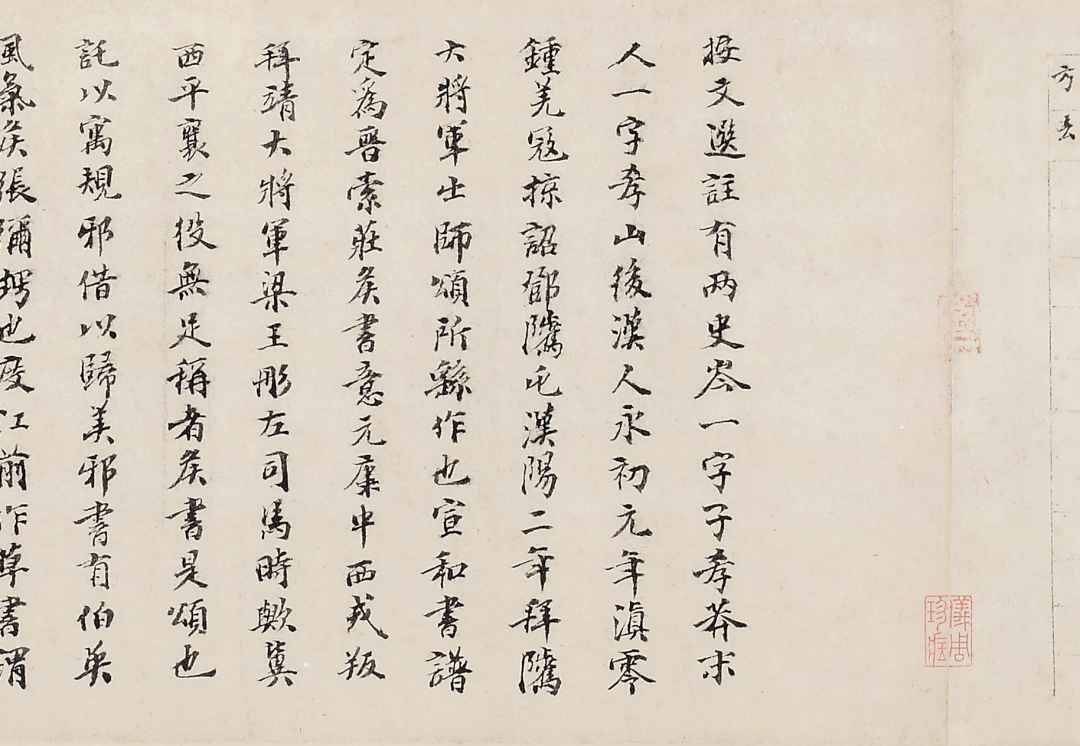 按文選註有兩史岑一字子孝莽末
人一字孝山後漢人永初元年滇零
鍾羌寇掠詔鄧隲屯漢陽二年拜隲
大將軍出師頌所繇作也宣和書譜
定爲晉索莊矦書意元康中西戎叛
拜靖大將軍梁王彤左司馬時歟冀
西平襄之役無足稱者矦書是頌也
託以寓規邪借以歸美邪書有伯英
風氣矦張彌甥也度江前作草書謂
儀周珍藏